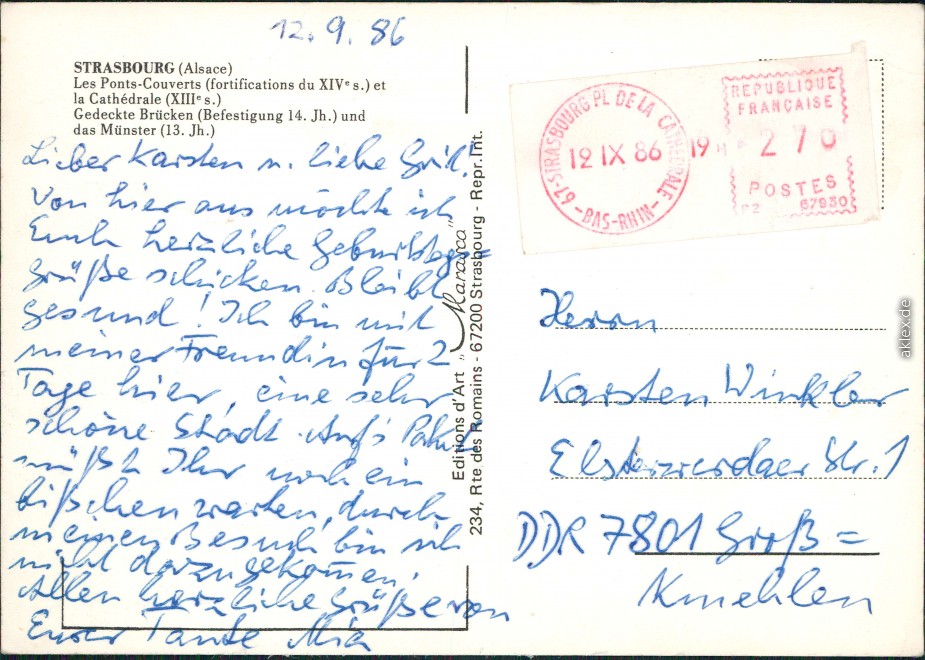 12.9.86
STRASBOURG (Alsace)
Les Ponts-Couverts (fortifications du XIVe s.) et
la Cathédrale (XIIIe s.)
Gedeckte Brücken (Befestigung 14. Jh.) und
das Münster (13. Jh.)
Lieber Karsten u. liebe
Von hier aus möchte ich
Euch herzliche Geburtstags=
grüße schicken. Bleibt
gesund! Ich bin mit
meiner Freundin für 2
Tage hier, eine sehr
schöne Stadt. Auf's Paket
müßt Ihr noch ein
bißchen warten, durch
meinen Besuch bin ich
nicht dazugekommen.
Allen herzliche Grüße von
Eurer Tante Mia
Editions d'Art "Marasco"
234, Rte des Romains - 67200 Strasbourg - Repr. Int.
67-STRASBOURG PL DE LA CATHEDRALE
12 IX 86
-BAS-RHIN-
19 H
REPUBLIQUE
FRANÇAISE
270
POSTES
PZ 67930
Herrn
Karsten Winkler
Elsterwerdaer Str. 1
DDR 7801 Groß=
Kmehlen
aklex.de